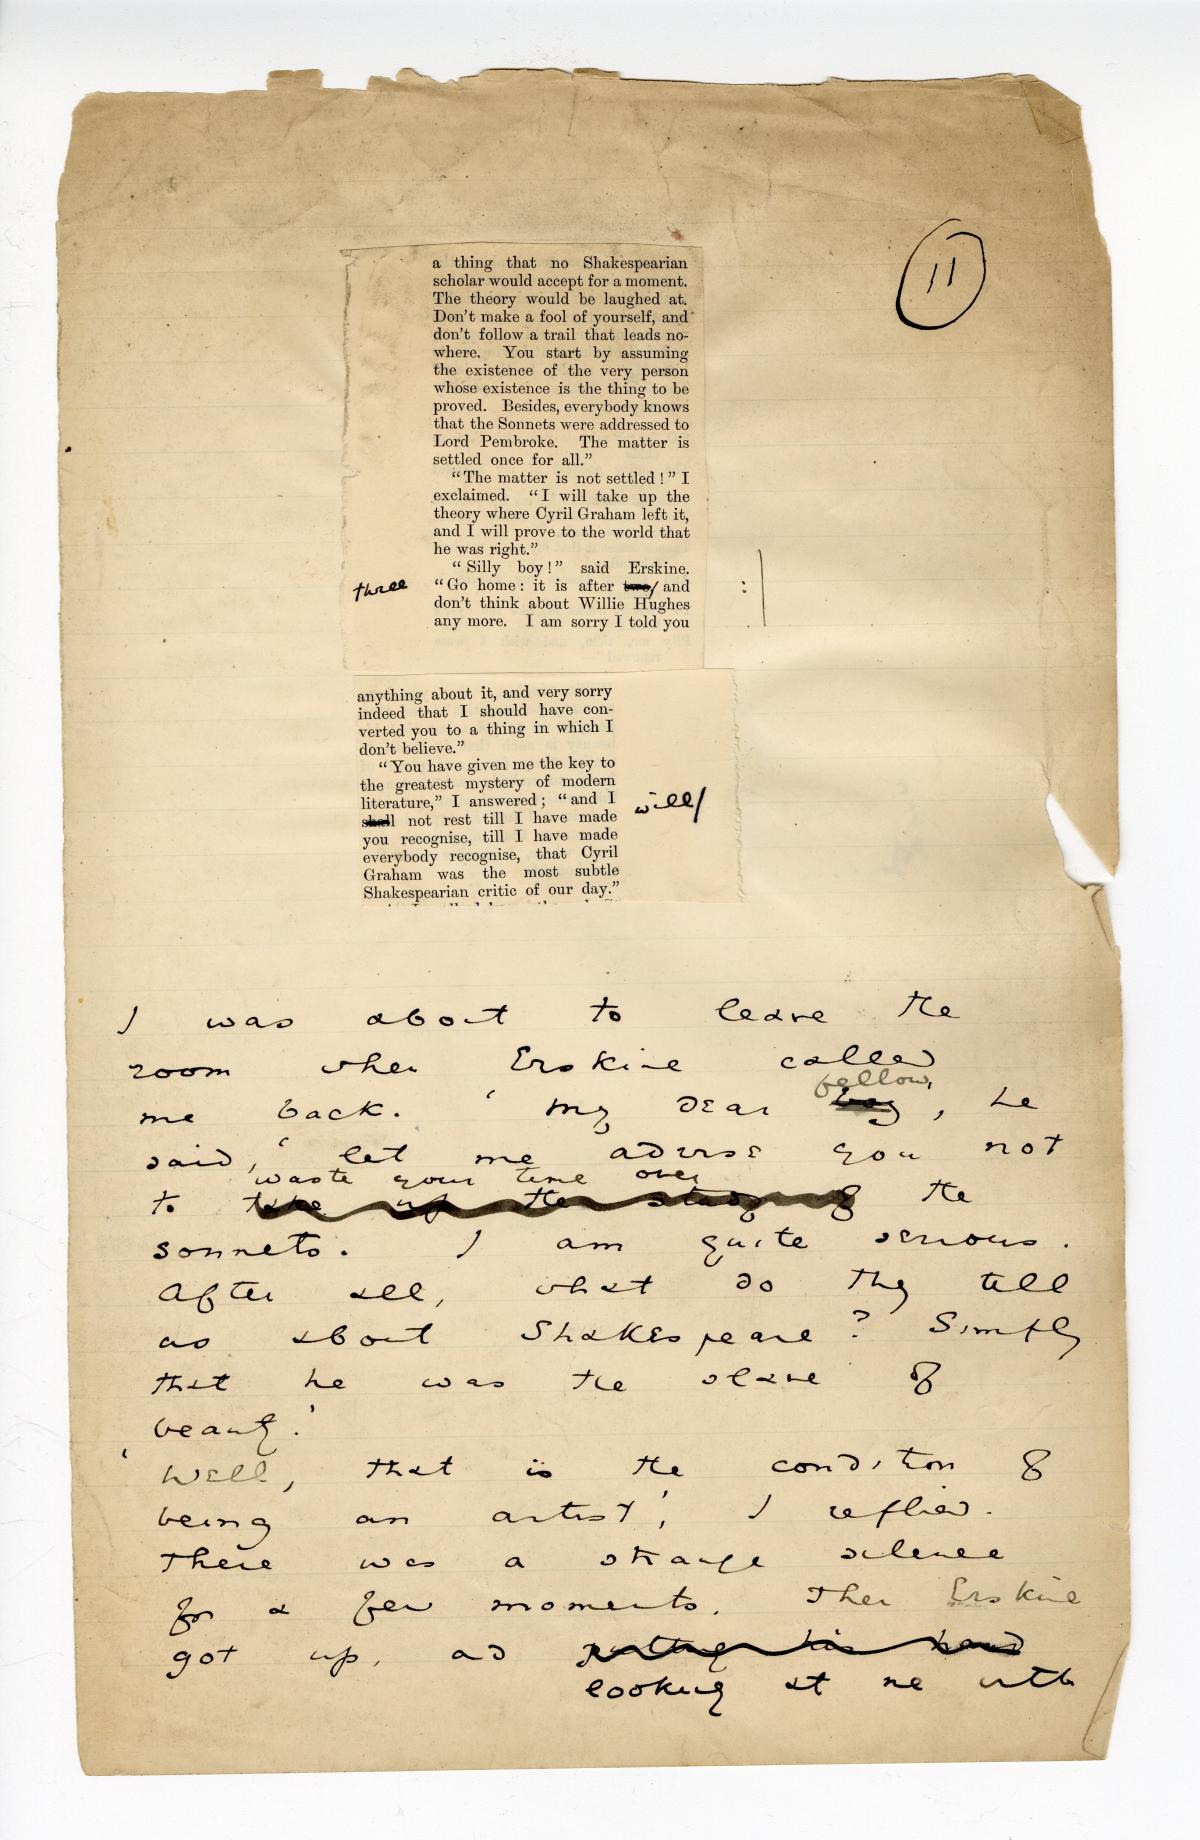 11
a thing that no Shakespearian
scholar would accept for a moment.
The theory would be laughed at.
Don't make a fool of yourself, and
don't follow a trail that leads no-
where. You start by assuming
the existence of the very person
whose existence is the thing to be
proved. Besides, everybody knows
that the Sonnets were addressed to
Lord Pembroke. The matter is
settled once for all.”
“The matter is not settled!” I
exclaimed. “I will take up the
theory where Cyril Graham left it,
and I will prove to the world that
he was right.”
“Silly boy!” said Erskine.
three “Go home: it is after two/ and :|
don't think about Willie Hughes
any more. I am sorry I told you
anything about it, and very sorry
indeed that I should have con-
verted you to a thing in which I
don't believe.”
“You have given me the key to
the greatest mystery of modern
literature,” I answered; “and I
shall not rest till I have made will/
you recognise, till I have made
everybody recognise, that Cyril
Graham was the most subtle
Shakespearian critic of our day.”
I was about to leave the
room when Erskine called
fellow,
me back. ‘My dear boy, he
said, ‘let me advise you not
waste your time over
to take up the study of the
sonnets. I am quite serious.
After all, what do they tell
us about Shakespeare? Simply
that he was the slave of
beauty.’
‘Well, that is the condition of
being an artist’, I replied.
There was a strange silence
for a few moments. Then Erskine
got up, ad putting his hand
looking at me with